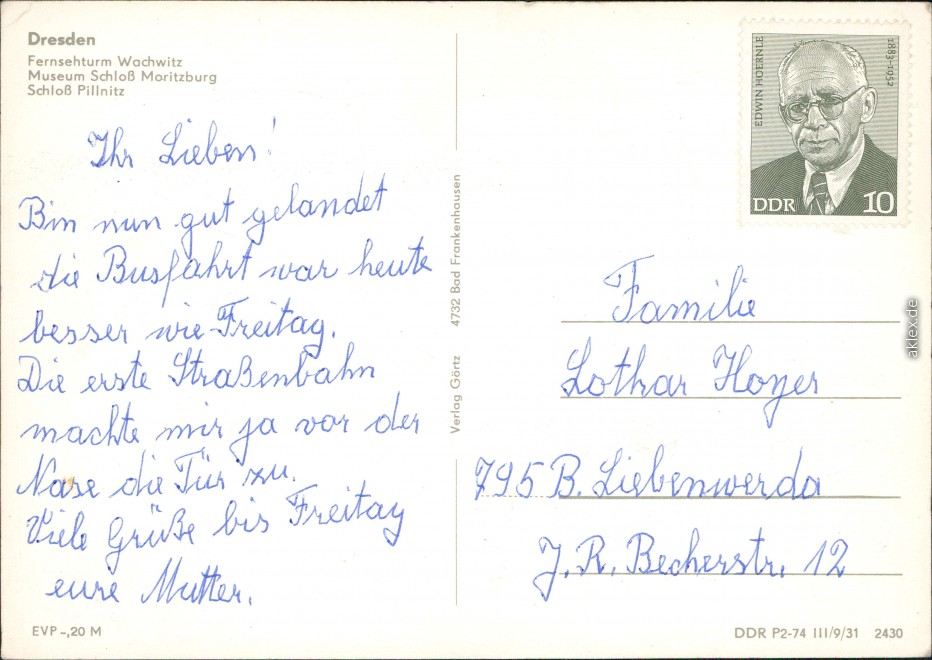 Dresden
Fernsehturm Wachwitz
Museum Schloß Moritzburg
Schloß Pillnitz
Ihr Lieben!
Bin nun gut gelandet
die Busfahrt war heute
besser wie Freitag.
Die erste Straßenbahn
machte mir ja vor der
Nase die Tür zu.
Viele Grüße bis Freitag
eure Mutter.
EVP -,20 M
Verlag Görtz 4732 Bad Frankenhausen
EDWIN HOERNLE
1883-1952
DDR 10
Familie
Lothar Hoyer
795 B. Liebenwerda
J. R. Becherstr. 12
DDR P2-74 III/9/31 2430
aklex.de